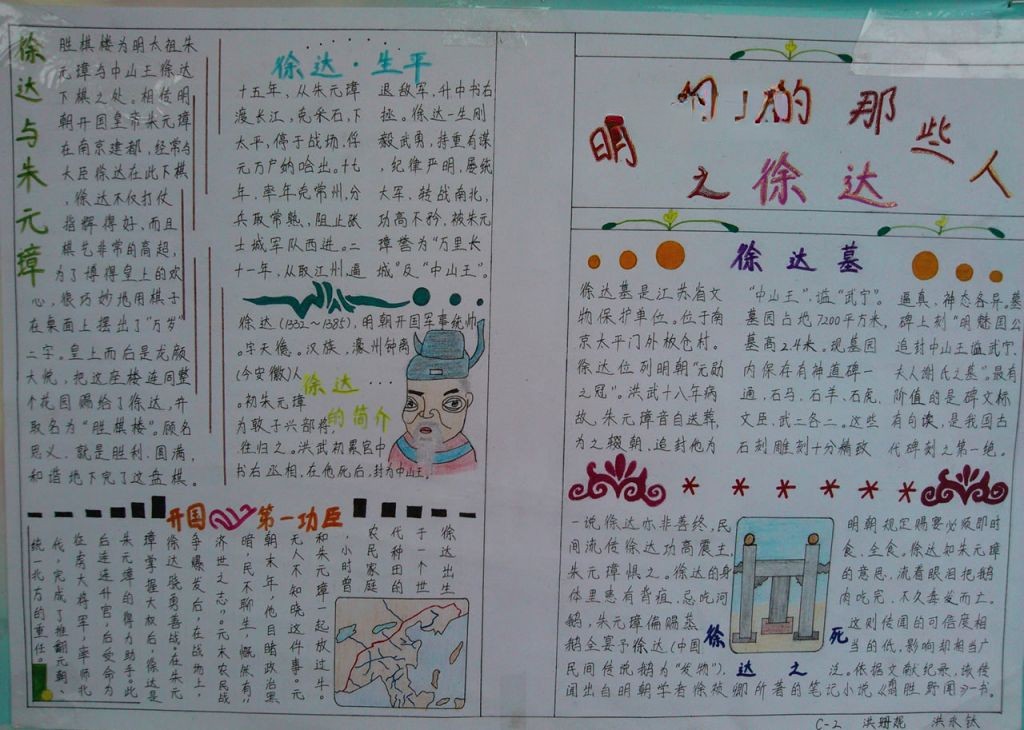 徐达与朱元璋
胜棋楼为明太祖朱
元璋与中山王徐达
下棋之处。相传明
朝开国皇帝朱元璋
在南京建都，经常与
大臣徐达在此下棋
，徐达不仅打仗
指挥得好，而且
棋艺非常的高超，
为了博得皇上的欢
心，很巧妙地用棋子
在桌面上摆出了“万岁”
二字。皇上而后是龙颜
大悦，把这座楼连同整
个花园赐给了徐达，并
取名为“胜棋楼”。顾名
思义，就是胜利、圆满，
和谐地下完了这盘棋。
徐达·生平
十五年，从朱元璋
渡长江，克采石，下
太平，停于战场，俘
元万户纳哈出。十七
年，率军克常州，分
兵取常熟，阻止张
士城军队西进。二
十一年，从取江州，逼
退敌军，升中书右
丞。徐达一生刚
毅武勇，持重有谋
，纪律严明，屡统
大军，转战南北，
功高不矜，被朱元
璋誉为“万里长
城”及“中山王”。
徐达(1332～1385)，明朝开国军事统帅
。字天德。汉族，濠州钟离
(今安徽)人
徐达
的简介
。初朱元璋
为郭子兴部将，
往归之。洪武初累官中
书右丞相，在他死后，封为中山王。
开国第一功臣
徐达出生
于一个世
代种田的
农民家庭
，小时曾
和朱元璋一起放过牛。
无人不知晓这件事。元
朝末年，他目睹政治黑
暗，民不聊生，慨然有
济世之志。元末农民战
争爆发后，在战场上，
徐达骁勇善战。在朱元
璋掌握大权后，徐达是
朱元璋的得力助手。此
后连连升官，后受命为
征南大将军，率师北
伐，完成了推翻元朝、
统一北方的重任。
明
的
那
些
人
之
徐达
徐达墓
徐达墓是江苏省文
物保护单位。位于南
京太平门外板仓村。
徐达位列明朝“元勋
之冠”。洪武十八年病
故。朱元璋音自送葬，
为之辍朝，追封他为
“中山王”，谥“武宁”。
墓园占地7200平方米，
墓高2.4米。现墓园
内保存有神道碑一
通，石马、石羊、石虎、
文臣、武二各二。这些
石刻雕刻十分精致
逼真，神态各异。墓
碑上刻“明魏国公
追封中山王谥武宁、
夫人谢氏之墓”。最有
价值的是碑文标
有句读，是我国古
代碑刻之第一绝。
一说徐达亦非善终，民
间流传徐达功高震主，
朱元璋惧之。徐达的身
体里患有背疽，忌吃河
鹅，朱元璋偏赐蒸
鹅全宴予徐达(中国
民间传说鹅为“发物”)，
徐达之死
明朝规定赐宴必须即时
食、全食。徐达知朱元璋
的意思，流着眼泪把鹅
肉吃完，不久毒发而亡。
这则传闻的可信度相
当的低，影响却相当广
泛。依据文献纪录，该传
闻出自明朝学者徐祯卿所著的笔记小说《翦胜野闻》一书。
C-2 洪珊妮